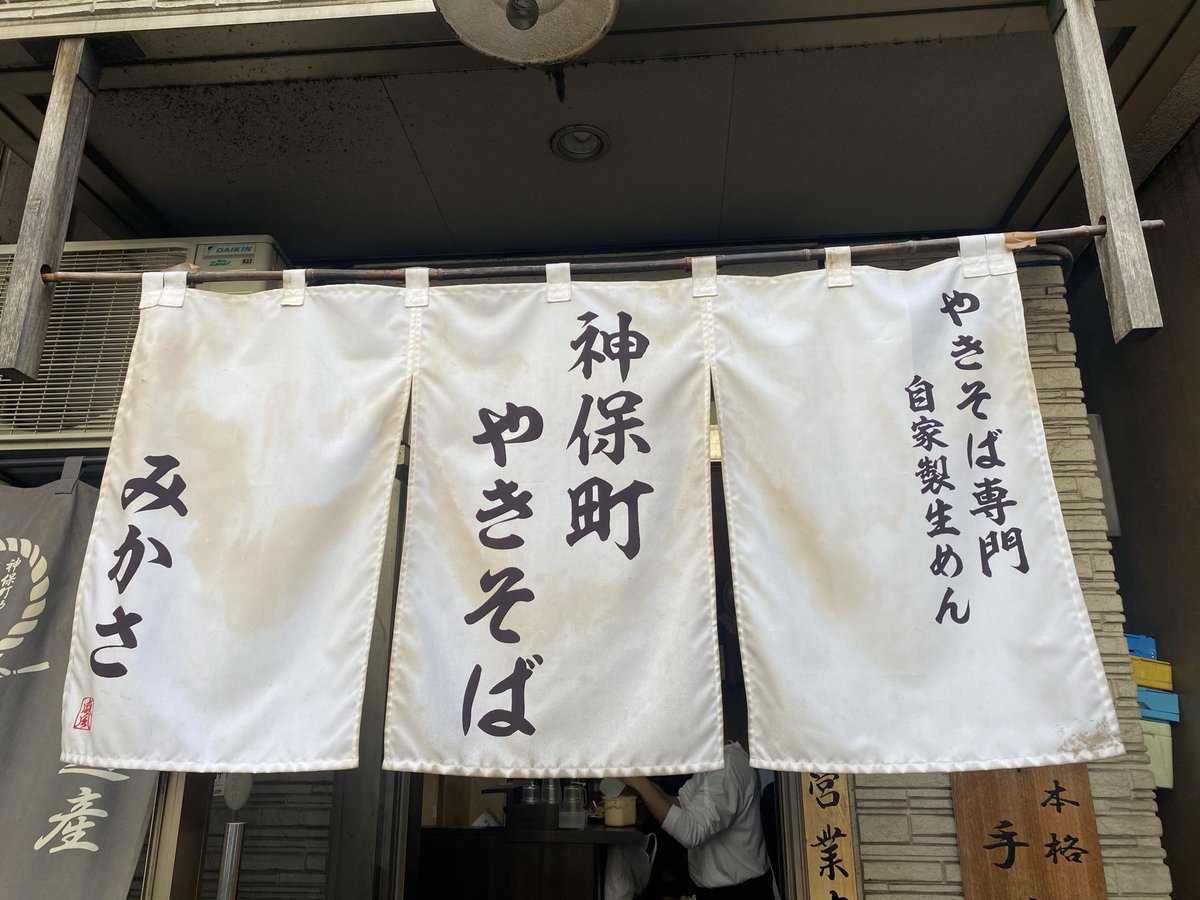 やきそば専門
自家製生めん
神保町
やきそば
みかさ
DAIKIN
R32
神保町の
産
営業
本格
手